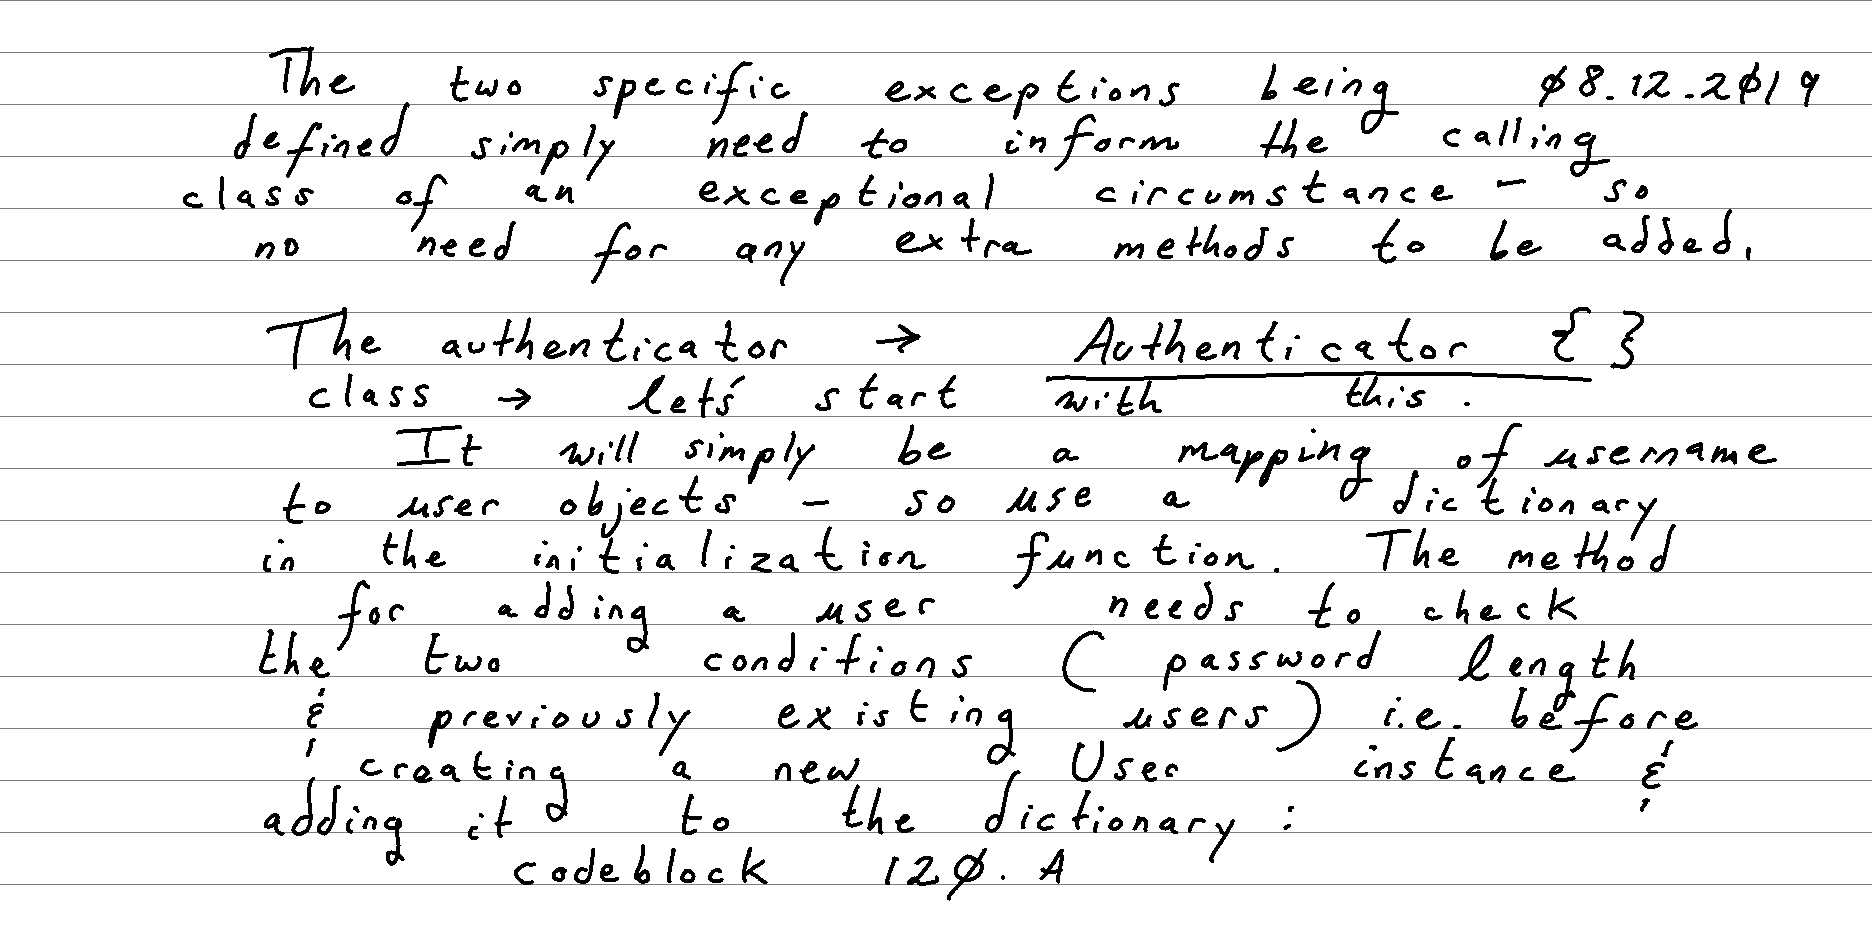 The two specific exceptions being 08.12.2019
defined simply need to inform the calling
class of an exceptional circumstance - so
no need for any extra methods to be added.
The authenticator → Authenticator { }
class → let's start with this.
It will simply be a mapping of username
to user objects - so use a dictionary
in the initialization function. The method
for adding a user needs to check
the two conditions ( password length
& previously existing users) i.e. before
creating a new User instance &
adding it to the dictionary :
codeblock 120.A